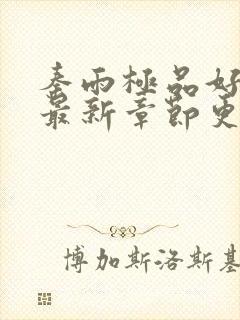 秦雨極品好
最新章節更
博加斯洛斯基